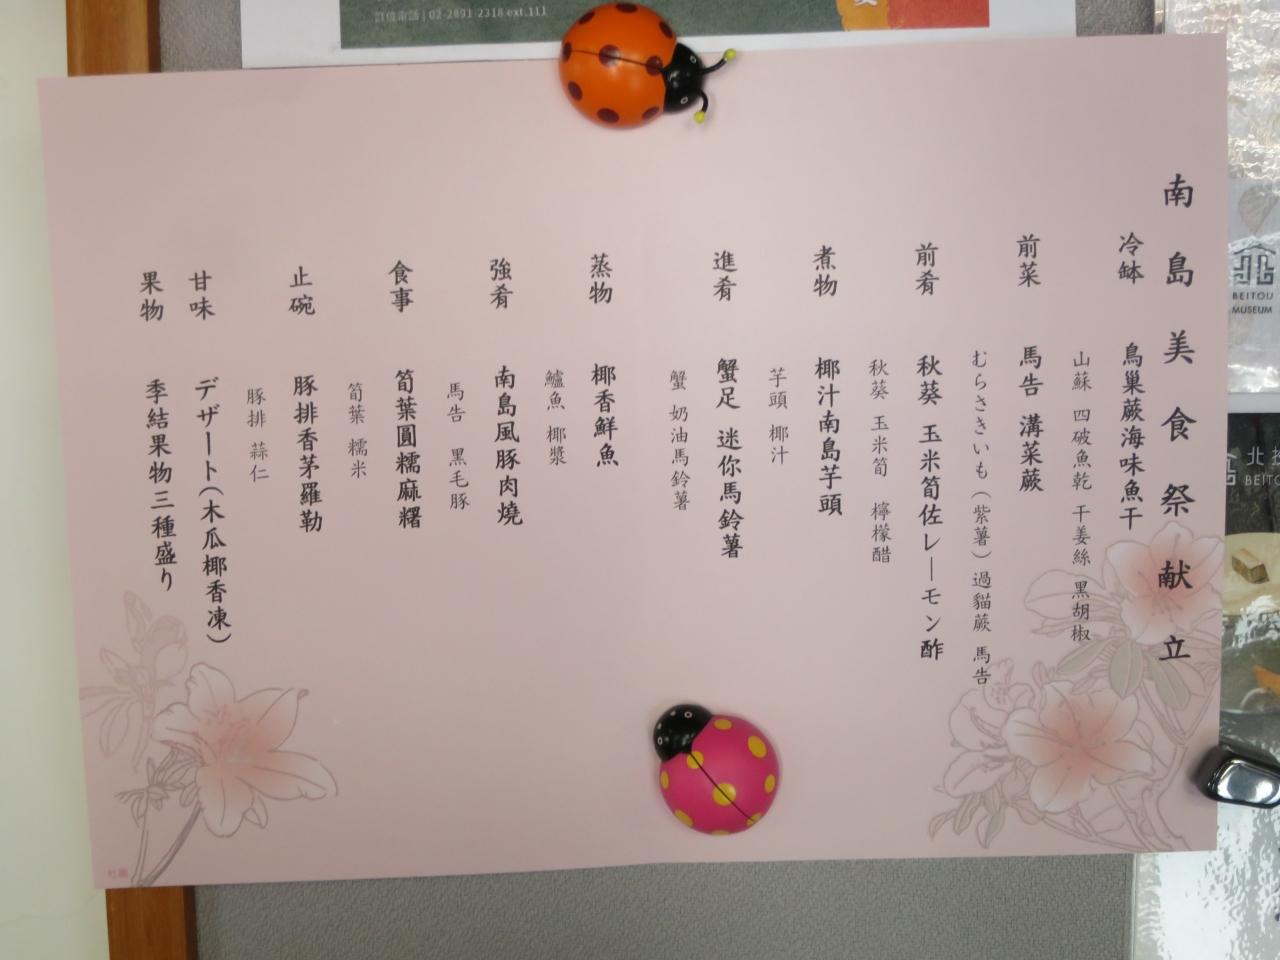 訂位電話 | 02-2891-2318 ext.111
南島美食祭 献立
冷缽 鳥巢蕨海味魚干
山蘇 四破魚乾 干姜絲 黑胡椒
前菜 馬告 溝菜蕨
むらさきいも（紫薯）過貓蕨 馬告
前肴 秋葵 玉米筍佐レーモン酢
秋葵 玉米筍 檸檬醋
煮物 椰汁南島芋頭
芋頭 椰汁
進肴 蟹足 迷你馬鈴薯
蟹 奶油馬鈴薯
蒸物 椰香鮮魚
鱸魚 椰漿
強肴 南島風豚肉燒
馬告 黑毛豚
食事 筍葉圓糯麻糬
筍葉 糯米
止碗 豚排香茅羅勒
豚排 蒜仁
甘味 デザート（木瓜椰香凍）
果物 季結果物三種盛り
BEITOU
MUSEUM
北投